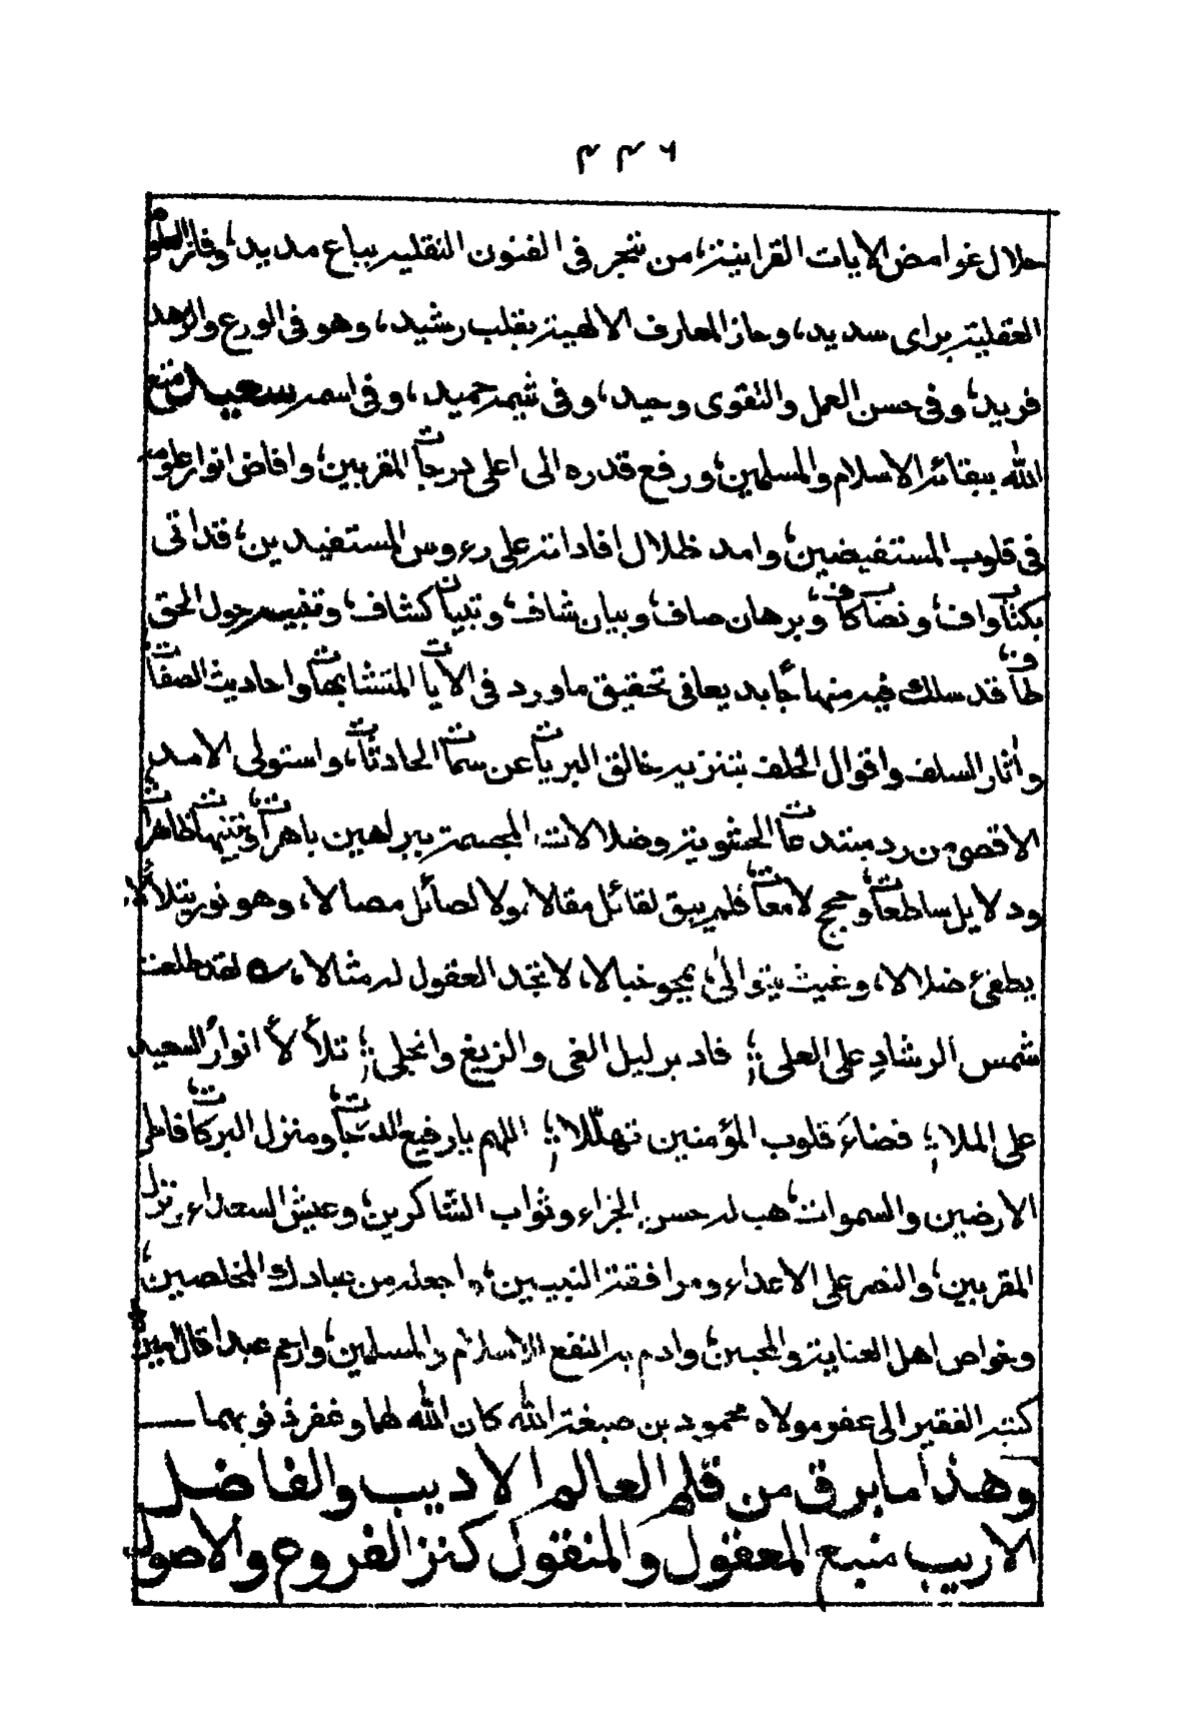 ٤٤٦
حلال غوامض الايات القرانية، من تبحر في الفنون النقلية بباع مديد، وفاز العلوم
العقلية براى سديد، وحاز المعارف الالهية بقلب رشيد، وهو في الورع والزهد
فريد، وفي حسن العمل والتقوى وحيد، وفي شيمه حميد، وفي اسمه سعيد متع
الله ببقائه الاسلام والمسلمين، ورفع قدره الى اعلى درجات المقربين، وافاض انوار علومه
في قلوب المستفيضين، وامد ظلال افاداته على رءوس المستفيدين، قد اتى
بكتاب واف، ونصاب كاف، وبرهان صاف، وبيان شاف، وتبيان كشاف، وتفييه حول الحق
طاف، قد سلك فيه منهاجًا بديعا في تحقيق ما ورد في الايات المتشابهات واحاديث الصفات
واٰثار السلف واقوال الخلف بتنزيه خالق البريات عن سمات الحادثات، واستولى الامد
الاقصى من رد مبتدعات الحشوية وضلالات المجسمة ببراهين باهرات، وتنبيهات ظاهرات
ودلايل ساطعات، وحجج لامعات، فلم يبق لقائل مقالا، ولا لصائل مصالا، وهو نور يتلألأ،
يطفئ ضلالا، وغيث يتوالى، يمحو خبالا، لا تجد العقول له مثالا، ه لقد طلعت
شمس الرشاد على العلى؛ فادبر ليل الغى والزيغ وانجلى؛ تلألأ انوار السعيد
على الملا؛ فضاء قلوب المؤمنين تهلّلا؛ اللهم يا رفيع الدرجات، ومنزل البركات، فاطر
الارضين والسموات، هب له حسن الجزاء وثواب الشاكرين، وعيش السعداء ونزل
المقربين، والنصر على الاعداء ومرافقة النبيين، واجعله من عبادك المخلصين،
وخواص اهل العناية والمحبين، وادم به النفع للاسلام والمسلمين، وارحم عبدا قال امين
كتبه الفقير الى عفو مولاه محمود بن صبغة الله كان الله لهما وغفر ذنوبهما
وهذا ما برق من قلم العالم الاديب والفاضل
الاريب منبع المعقول والمنقول كنز الفروع والاصول